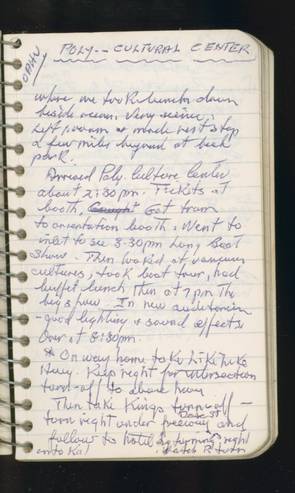 OAHU
POLY -- CULTURAL CENTER
where we took lunch down
beside ocean. Very scenic.
Left room & made rest stop
a few miles beyond at beach
park.
Arrived Poly. Culture Center
about 2:30 pm. Tickets at
booth, Got tram
to orientation booth. Went to
inlet to see 3:30 pm Long Boat
Show. Then looked at various
cultures, took boat tour, had
buffet lunch, then at 7 pm the
big show. In new auditorium
- good lighting & sound effects
Over at 8:30 pm.
* On way home take Likelike
Hwy. Keep right for intersection
turn-off to above hwy
Then take Kings turnoff -
turn right under freeway and
follow to hotel by turning right
onto Kal